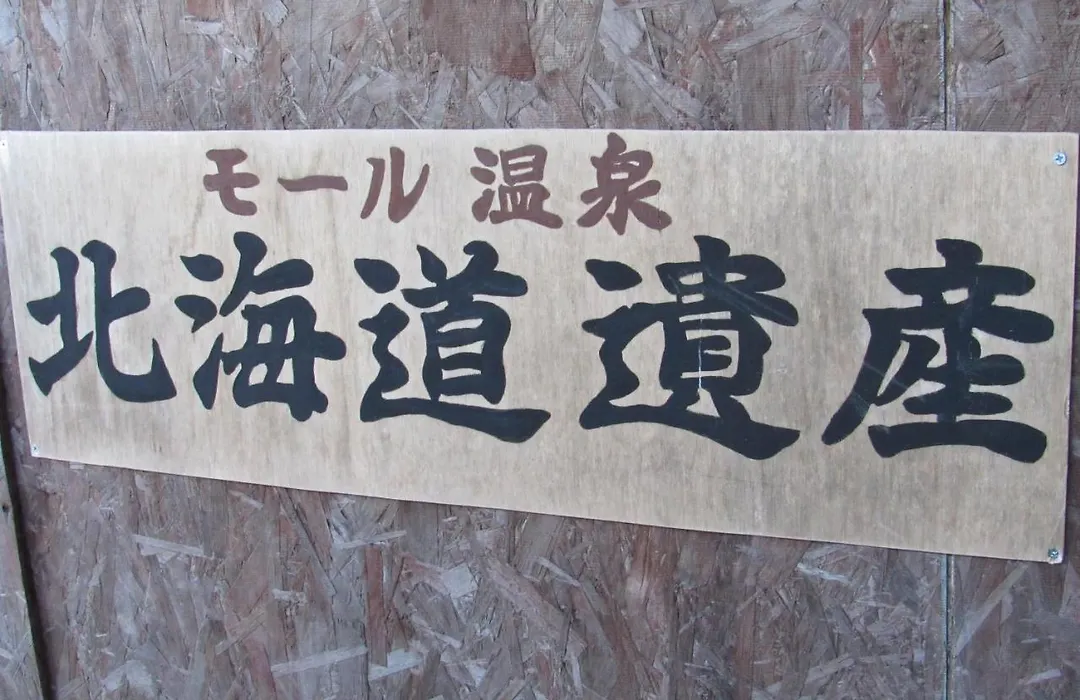 モール 温泉
北海道遺産